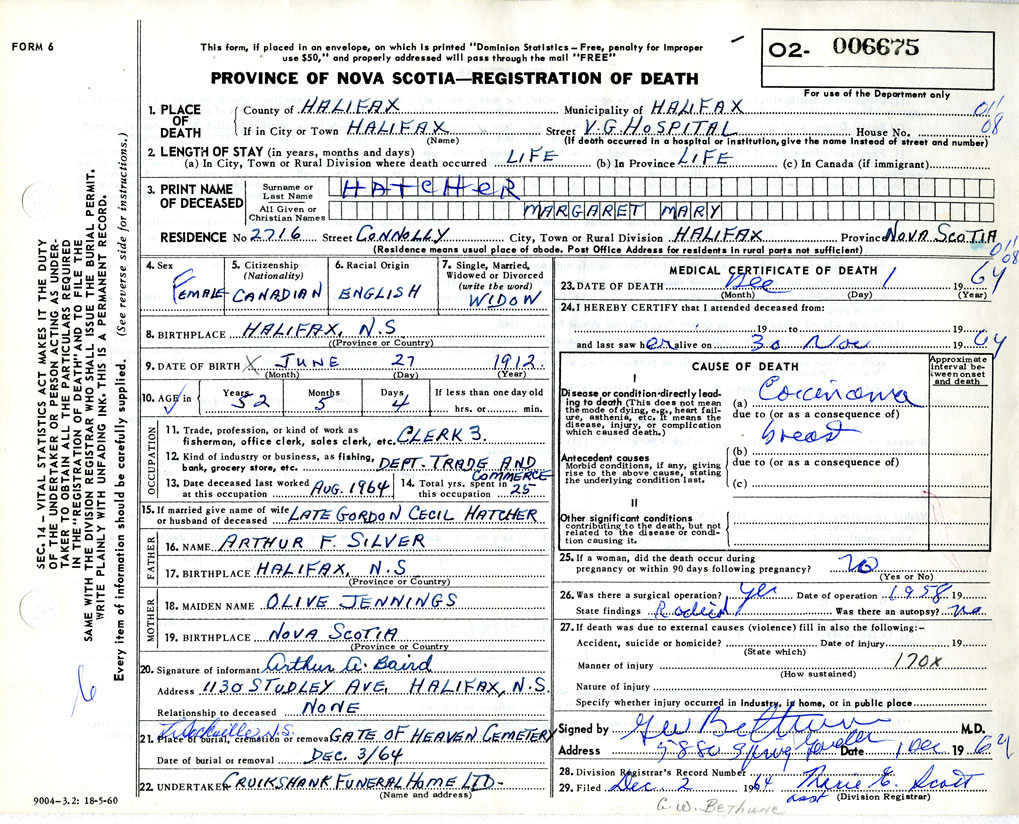 FORM 6
This form, if placed in an envelope, on which is printed "Dominion Statistics – Free, penalty for improper
use $50," and properly addressed will pass through the mail "FREE"
O2- 006675
PROVINCE OF NOVA SCOTIA—REGISTRATION OF DEATH
For use of the Department only
SEC. 14 – VITAL STATISTICS ACT MAKES IT THE DUTY
OF THE UNDERTAKER OR PERSON ACTING AS UNDER-
TAKER TO OBTAIN ALL THE PARTICULARS REQUIRED
IN THE "REGISTRATION OF DEATH" AND TO FILE THE
SAME WITH THE DIVISION REGISTRAR WHO SHALL ISSUE THE BURIAL PERMIT.
WRITE PLAINLY WITH UNFADING INK. THIS IS A PERMANENT RECORD.
Every item of information should be carefully supplied. (See reverse side for instructions.)
1. PLACE OF DEATH County of HALIFAX Municipality of HALIFAX 011
If in City or Town HALIFAX Street V.G. HOSPITAL House No. 08
(Name) (If death occurred in a hospital or institution, give the name instead of street and number)
2. LENGTH OF STAY (in years, months and days)
(a) In City, Town or Rural Division where death occurred LIFE (b) In Province LIFE (c) In Canada (if immigrant)
3. PRINT NAME OF DECEASED Surname or Last Name HATCHER
All Given or Christian Names MARGARET MARY
RESIDENCE No 2716 Street CONNOLLY City, Town or Rural Division HALIFAX Province NOVA SCOTIA
(Residence means usual place of abode. Post Office Address for residents in rural parts not sufficient) 011 08
4. Sex FEMALE
5. Citizenship (Nationality) CANADIAN
6. Racial Origin ENGLISH
7. Single, Married, Widowed or Divorced (write the word) WIDOW
8. BIRTHPLACE HALIFAX, N.S
(Province or Country)
9. DATE OF BIRTH X JUNE 27 1912.
(Month) (Day) (Year)
10. AGE in Years 52 Months 5 Days 4 If less than one day old hrs. or min.
OCCUPATION
11. Trade, profession, or kind of work as
fisherman, office clerk, sales clerk, etc. CLERK 3.
12. Kind of industry or business, as fishing,
bank, grocery store, etc. DEPT. TRADE AND COMMERCE
13. Date deceased last worked at this occupation AUG. 1964 14. Total yrs. spent in this occupation 25
15. If married give name of wife
or husband of deceased LATE GORDON CECIL HATCHER
FATHER
16. NAME ARTHUR F. SILVER
17. BIRTHPLACE HALIFAX, N.S
(Province or Country)
MOTHER
18. MAIDEN NAME OLIVE JENNINGS
19. BIRTHPLACE NOVA SCOTIA
(Province or Country)
20. Signature of informant Arthur A. Baird
Address 1130 STUDLEY AVE, HALIFAX, N.S.
Relationship to deceased NONE
Sackville N.S.
21. Place of burial, cremation or removal GATE OF HEAVEN CEMETERY
Date of burial or removal DEC. 3/64
22. UNDERTAKER CRUIKSHANK FUNERAL HOME LTD-
(Name and address)
9004-3.2: 18-5-60
MEDICAL CERTIFICATE OF DEATH
23. DATE OF DEATH Dec 1 1964
(Month) (Day) (Year)
24. I HEREBY CERTIFY that I attended deceased from:
19 to 19
and last saw her alive on 30 Nov 1964
CAUSE OF DEATH
Approximate interval between onset and death
I
Disease or condition directly leading to death (This does not mean the mode of dying, e.g., heart failure, asthenia, etc. It means the disease, injury, or complication which caused death.)
(a) Carcinoma
due to (or as a consequence of)
breast
Antecedent causes
Morbid conditions, if any, giving rise to the above cause, stating the underlying condition last.
(b)
due to (or as a consequence of)
(c)
II
Other significant conditions
contributing to the death, but not related to the disease or condition causing it.
25. If a woman, did the death occur during
pregnancy or within 90 days following pregnancy? no
(Yes or No)
26. Was there a surgical operation? yes Date of operation 1958 19
State findings Was there an autopsy? no
27. If death was due to external causes (violence) fill in also the following:–
Accident, suicide or homicide? Date of injury 19
(State which)
Manner of injury 170X
(How sustained)
Nature of injury
Specify whether injury occurred in industry, in home, or in public place
Signed by G W Bethune M.D.
Address 5880 Spring Garden Date 1 Dec 1964
28. Division Registrar's Record Number
29. Filed Dec. 2 1964 Marie E. Scott
asst (Division Registrar)
G. W. BETHUNE